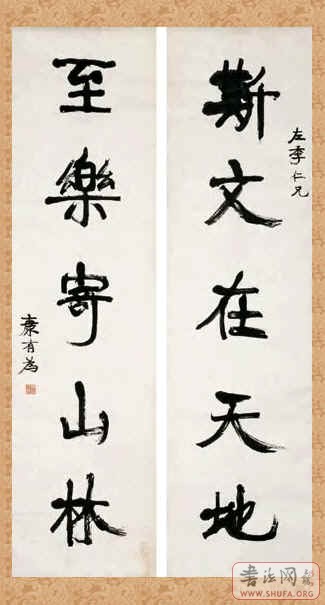 斯文在天地
左李仁兄
至樂寄山林
康有為
書法网
WWW.SHUFA.ORG